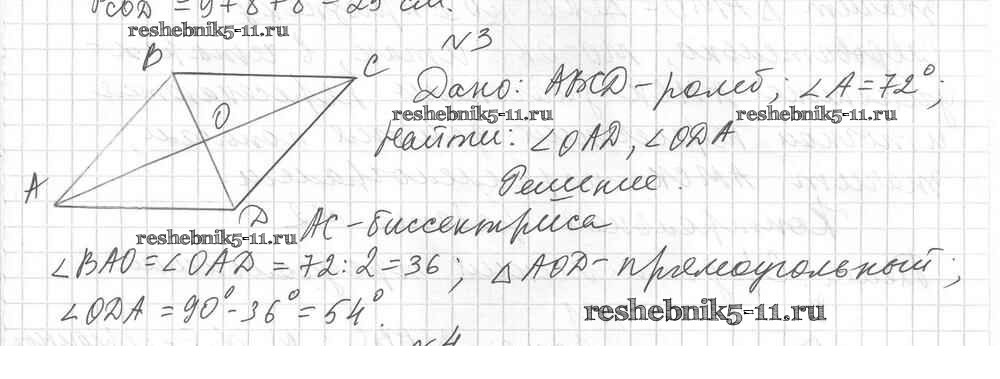 PCOD = 9+8+8=25 см.
reshebnik5-11.ru
N3
B
C
O
A
D
Дано: ABCD-ромб; ∠A=72°;
reshebnik5-11.ru
reshebnik5-11.ru
Найти: ∠OAD, ∠ODA
Решение.
AC-биссектриса
reshebnik5-11.ru
∠BAO=∠OAD=72:2=36; △AOD-прямоугольный;
∠ODA=90°-36°=54°.
reshebnik5-11.ru
N4